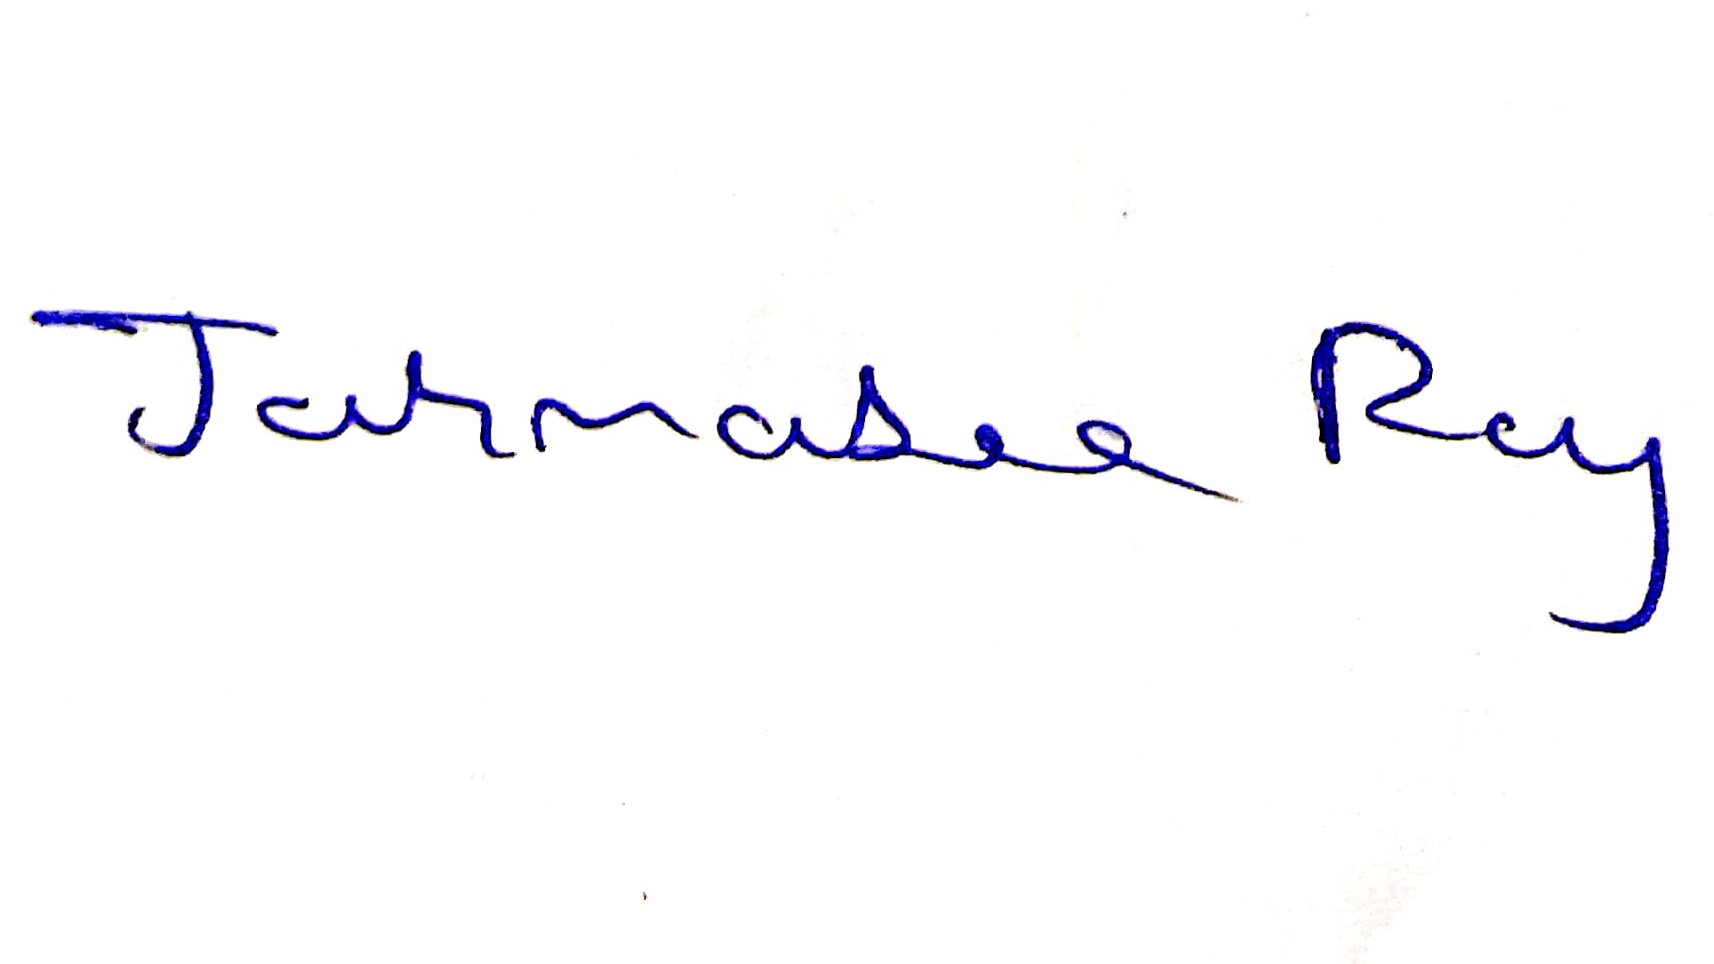 Jarmasee Ray